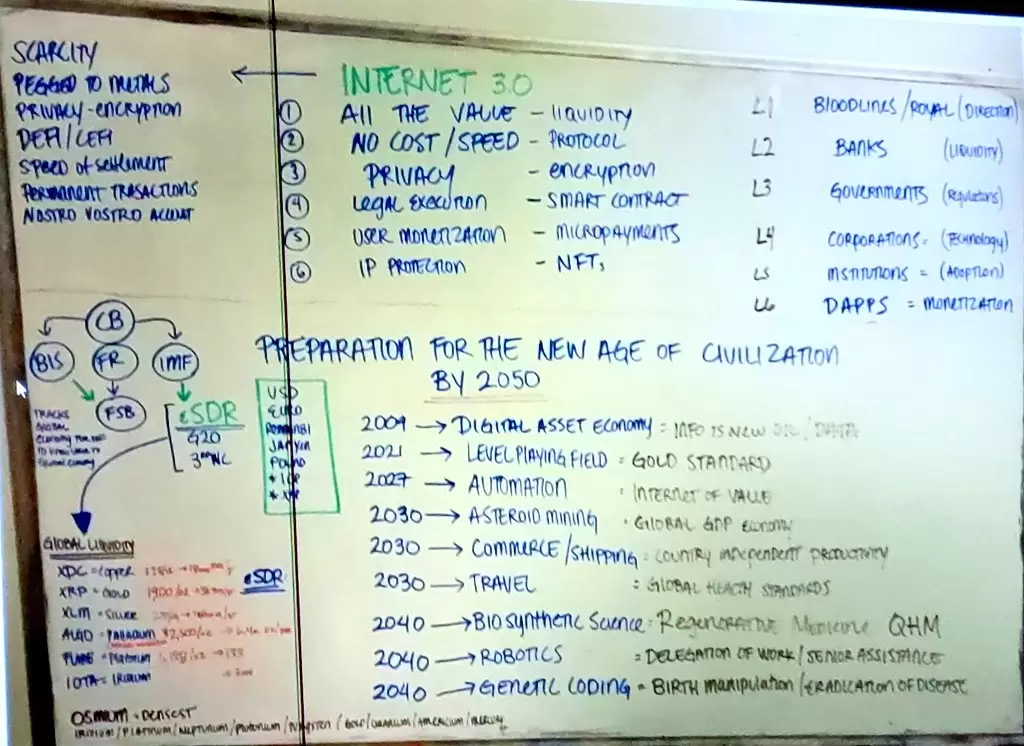 SCARCITY
PEGGED TO METALS
PRIVACY-ENCRYPTION
DEFI/CEFI
SPEED OF SETTLEMENT
PERMANENT TRASACTIONS
NOSTRO VOSTRO
INTERNET 3.0
① ALL THE VALUE - LIQUIDITY
② NO COST/SPEED - PROTOCOL
③ PRIVACY - ENCRYPTION
④ LEGAL EXECUTION - SMART CONTRACT
⑤ USER MONETIZATION - MICROPAYMENTS
⑥ IP PROTECTION - NFTs
L1 BLOODLINES/ROYAL (DIRECTION)
L2 BANKS (LIQUIDITY)
L3 GOVERNMENTS (Regulations)
L4 CORPORATIONS = (TECHNOLOGY)
L5 INSTITUTIONS = (ADOPTION)
L6 DAPPS = MONETIZATION
CB
BIS FR IMF
FSB
TRACKS
GLOBAL
eSDR
G20
USD
EURO
POUND
PREPARATION FOR THE NEW AGE OF CIVILIZATION
BY 2050
2009 → DIGITAL ASSET ECONOMY = INFO IS NEW OIL/DATA
2021 → LEVEL PLAYING FIELD = GOLD STANDARD
2027 → AUTOMATION : INTERNET OF VALUE
2030 → ASTEROID MINING · GLOBAL GDP ECONOMY
2030 → COMMERCE/SHIPPING = COUNTRY INDEPENDENT PRODUCTIVITY
2030 → TRAVEL = GLOBAL HEALTH STANDARDS
2040 → BIOSYNTHETIC SCIENCE = REGENERATIVE MEDICINE QHM
2040 → ROBOTICS = DELEGATION OF WORK/SENIOR ASSISTANCE
2040 → GENETIC CODING = BIRTH MANIPULATION/ERADICATION OF DISEASE
GLOBAL LIQUIDITY
XDC = COPPER
XRP = GOLD
eSDR
XLM = SILVER
ALGO = PALLADIUM
FLARE = PLATINUM
IOTA = IRIDIUM
OSMIUM = DENSEST
IRIDIUM/PLATINUM/NEPTUNIUM/PLUTONIUM/TUNGSTEN/GOLD/URANIUM/AMERICIUM/MERCURY